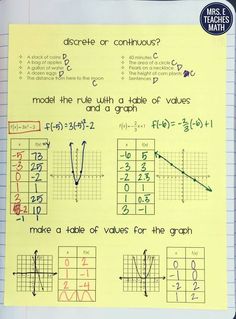 MRS. E
TEACHES
MATH
discrete or continuous?
A stack of coins D
A bag of apples D
A gallon of water C
A dozen eggs D
The distance from here to the moon C
60 minutes C
The area of a circle C
Pearls on a necklace D
The height of corn plants C
Sentences D
model the rule with a table of values
and a graph
f(x) = 3x² - 2
f(-5) = 3(-5)² - 2
x f(x)
-5 73
-3 25
0 -2
1 1
3 25
-2 10
-1 1
f(-6) = -2/3(-6) + 1
x f(x)
-6 5
-3 3
0 1
1 0.3
3 -1
make a table of values for the graph
x f(x)
0 2
1 -1
2 -4
x f(x)
0 0
-1 1
1 1